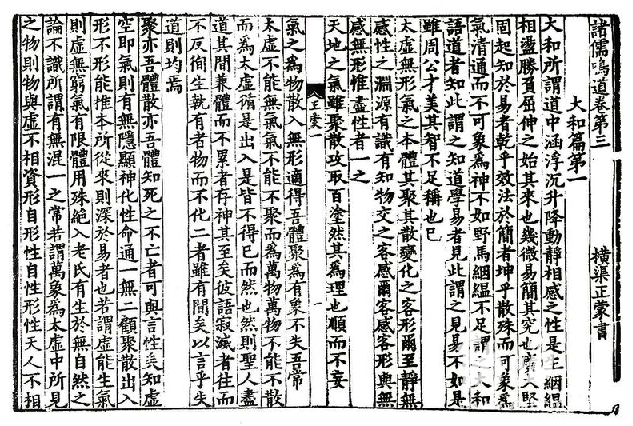 諸儒鳴道卷第三　橫渠正蒙書
大和篇第一
大和所謂道中涵浮沉升降動靜相感之性是生絪縕
相盪勝負屈伸之始其來也幾微易簡其究也廣大堅
固起知於易者乾乎效法於簡者坤乎散殊而可象爲
氣清通而不可象爲神不如野馬絪縕不足謂之大和
語道者知此謂之知道學易者見此謂之見易不如是
雖周公才美其智不足稱也已
太虛無形氣之本體其聚其散變化之客形爾至靜無
感性之淵源有識有知物交之客感爾客感客形與無
感無形惟盡性者一之
天地之氣雖聚散攻取百塗然其爲理也順而不妄
氣之爲物散入無形適得吾體聚爲有象不失吾常
太虛不能無氣氣不能不聚而爲萬物萬物不能不散
而爲太虛循是出入是皆不得已而然也然則聖人盡
道其間兼體而不累者存神其至矣彼語寂滅者往而
不反徇生執有者物而不化二者雖有間矣以言乎失
道則均焉
聚亦吾體散亦吾體知死之不亡者可與言性矣知虛
空即氣則有無隱顯神化性命通一無二顧聚散出入
形不形能推本所從來則深於易者也若謂虛能生氣
則虛無窮氣有限體用殊絕入老氏有生於無自然之
論不識所謂有無混一之常若謂萬象爲太虛中所見
之物則物與虛不相資形自形性自性形性天人不相